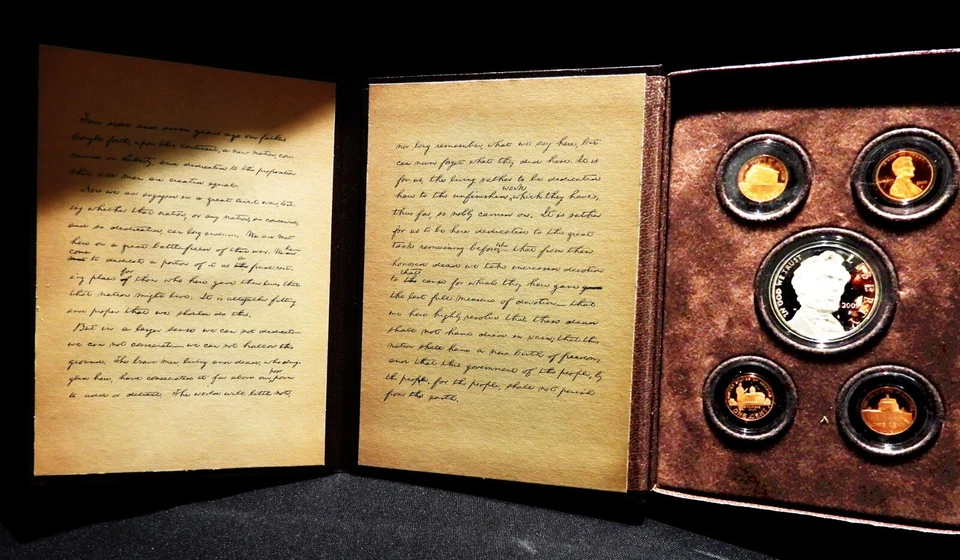 Four score and seven years ago our fathers
brought forth, upon this continent, a new nation, con
ceived in Liberty, and dedicated to the proposition
that all men are created equal.
Now we are engaged in a great civil war, test
ing whether that nation, or any nation, so conceived,
and so dedicated, can long endure. We are met
here on a great battlefield of that war. We have
come
met to dedicate a portion of it as the final rest
a
for
ing place of those who here gave their lives that
that nation might live. It is altogether fitting
and proper that we should do this.
But in a larger sense we can not dedicate—
we can not consecrate—we can not hallow this
ground. The brave men, living and dead, who strug
poor
gled here, have consecrated it far above our power
to add or detract. The world will little note,
nor long remember, what we say here, but
can never forget what they did here. It is
for us, the living, rather to be dedicated
work
here to the unfinished, which they have,
thus far, so nobly carried on. It is rather
for us to be here dedicated to the great
us
task remaining before that from these
honored dead we take increased devotion
that
to the cause for which they here gave
the last full measure of devotion—that
we here highly resolve that these dead
shall not have died in vain; that this
nation shall have a new birth of freedom;
and that this government of the people, by
the people, for the people, shall not perish
from the earth.
IN GOD WE TRUST
LIBERTY
ONE CENT